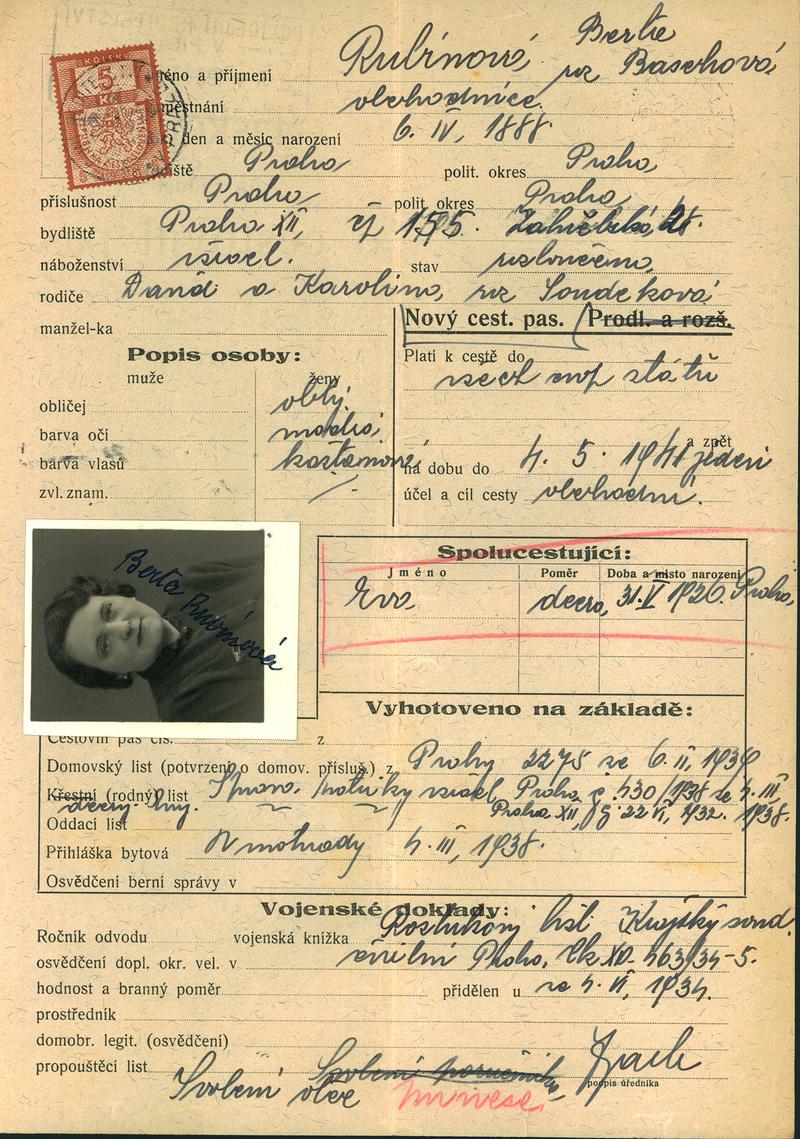 KOLEK
5
Kč
Rubínová Berta
roz Baschová
méno a příjmení
městnání obchodnice
den a měsíc narození 6. IV. 1888.
iště Praha polit. okres Praha
příslušnost Praha polit. okres Praha
bydliště Praha XII, čj 155.
náboženství israel. stav rozloučena
rodiče David a Karolina, roz Soudeková
manžel-ka
Nový cest. pas. Prodl. a rozš.
Popis osoby:
muže ženy
Platí k cestě do
všech států
obličej oblý
barva očí modrá
barva vlasů kaštanové
zvl. znam. -/-
a zpět
na dobu do 4. 5. 1941 jeden
účel a cíl cesty obchodní.
Berta Rubínová
Spolucestující:
Jméno Poměr Doba a místo narození
Eva dcera, 31. V 1926. Praha,
Vyhotoveno na základě:
Cestovní pas čís. z
Domovský list (potvrzení o domov. přísluš.) z Prahy 2275 ze 6. II, 1939
Křestní (rodný) list matriky israel. Praha č. 430/1938 ze 4. III.
dcery Praha XII, 22 VI, 1932. 1938.
Oddací list
Přihláška bytová Vinohrady 4. III, 1938.
Osvědčení berní správy v
Vojenské doklady:
Ročník odvodu vojenská knížka Krajský soud
osvědčení dopl. okr. vel. v civilní Praha, Ck XII. 463/34-5.
hodnost a branný poměr přidělen u ze 4. VI, 1934.
prostředník
domobr. legit. (osvědčení)
propouštěcí list
Svolení otce
podpis úředníka